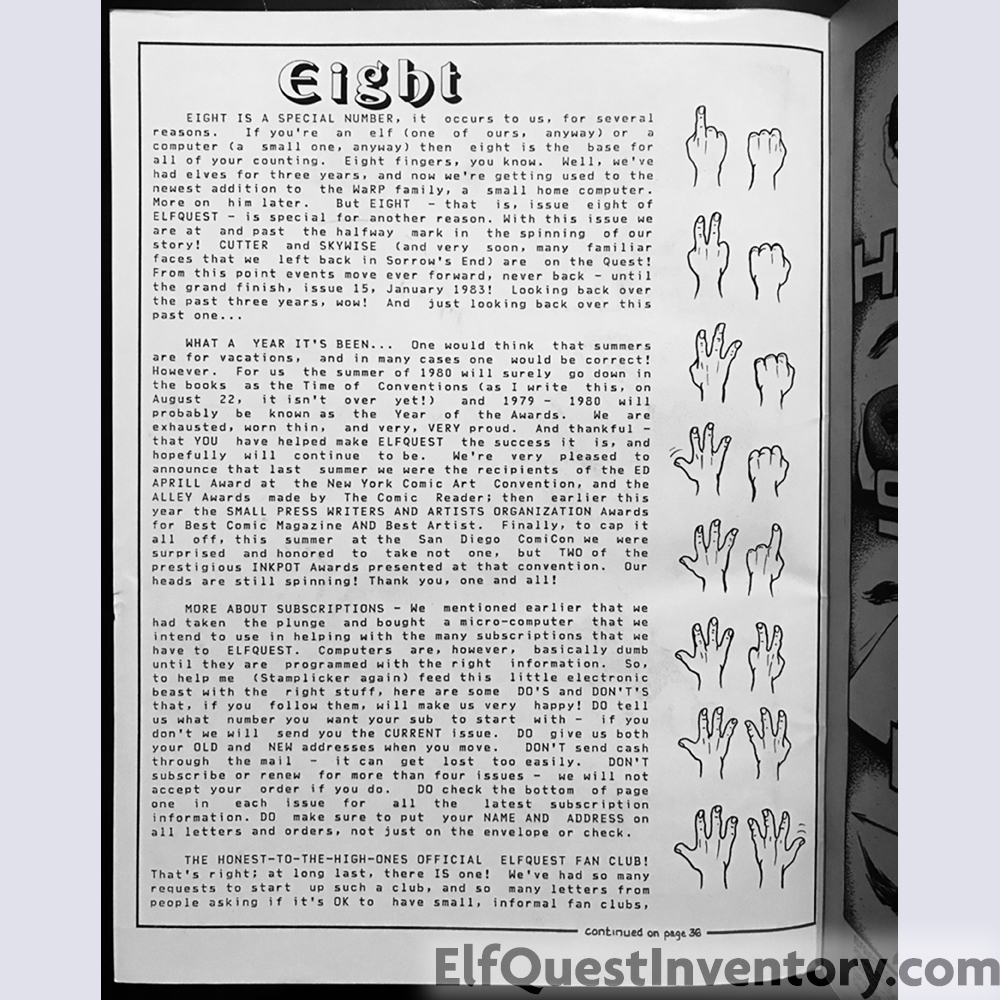 Eight
EIGHT IS A SPECIAL NUMBER, it occurs to us, for several
reasons. If you're an elf (one of ours, anyway) or a
computer (a small one, anyway) then eight is the base for
all of your counting. Eight fingers, you know. Well, we've
had elves for three years, and now we're getting used to the
newest addition to the WaRP family, a small home computer.
More on him later. But EIGHT - that is, issue eight of
ELFQUEST - is special for another reason. With this issue we
are at and past the halfway mark in the spinning of our
story! CUTTER and SKYWISE (and very soon, many familiar
faces that we left back in Sorrow's End) are on the Quest!
From this point events move ever forward, never back - until
the grand finish, issue 15, January 1983! Looking back over
the past three years, wow! And just looking back over this
past one...
WHAT A YEAR IT'S BEEN... One would think that summers
are for vacations, and in many cases one would be correct!
However. For us the summer of 1980 will surely go down in
the books as the Time of Conventions (as I write this, on
August 22, it isn't over yet!) and 1979 - 1980 will
probably be known as the Year of the Awards. We are
exhausted, worn thin, and very, VERY proud. And thankful -
that YOU have helped make ELFQUEST the success it is, and
hopefully will continue to be. We're very pleased to
announce that last summer we were the recipients of the ED
APRILL Award at the New York Comic Art Convention, and the
ALLEY Awards made by The Comic Reader; then earlier this
year the SMALL PRESS WRITERS AND ARTISTS ORGANIZATION Awards
for Best Comic Magazine AND Best Artist. Finally, to cap it
all off, this summer at the San Diego ComiCon we were
surprised and honored to take not one, but TWO of the
prestigious INKPOT Awards presented at that convention. Our
heads are still spinning! Thank you, one and all!
MORE ABOUT SUBSCRIPTIONS - We mentioned earlier that we
had taken the plunge and bought a micro-computer that we
intend to use in helping with the many subscriptions that we
have to ELFQUEST. Computers are, however, basically dumb
until they are programmed with the right information. So,
to help me (Stamplicker again) feed this little electronic
beast with the right stuff, here are some DO'S and DON'T'S
that, if you follow them, will make us very happy! DO tell
us what number you want your sub to start with - if you
don't we will send you the CURRENT issue. DO give us both
your OLD and NEW addresses when you move. DON'T send cash
through the mail - it can get lost too easily. DON'T
subscribe or renew for more than four issues - we will not
accept your order if you do. DO check the bottom of page
one in each issue for all the latest subscription
information. DO make sure to put your NAME AND ADDRESS on
all letters and orders, not just on the envelope or check.
THE HONEST-TO-THE-HIGH-ONES OFFICIAL ELFQUEST FAN CLUB!
That's right; at long last, there IS one! We've had so many
requests to start up such a club, and so many letters from
people asking if it's OK to have small, informal fan clubs,
continued on page 36
ElfQuestInventory.com